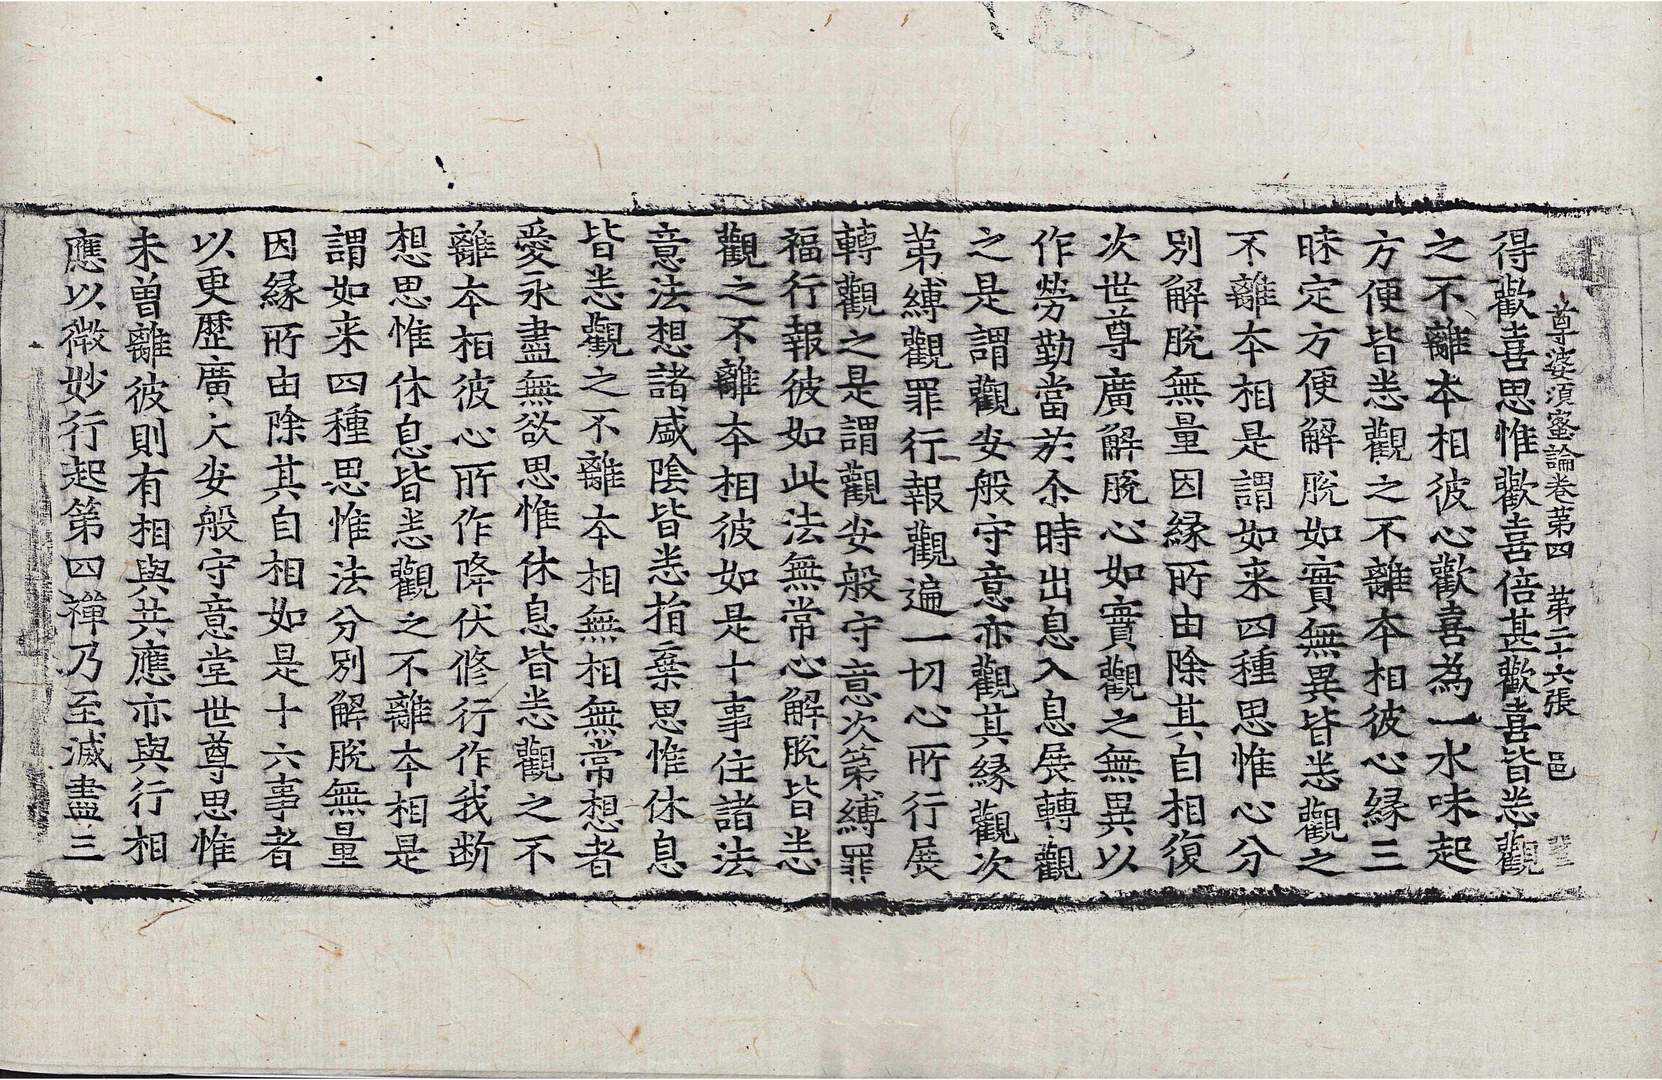 尊婆須蜜論卷第四　第二十六張　邑
得歡喜思惟歡喜倍甚歡喜皆悉觀
之不離本相彼心歡喜為一水味起
方便皆悉觀之不離本相彼心緣三
昧定方便解脫如實無異皆悉觀之
不離本相是謂如来四種思惟心分
別解脫無量因緣所由除其自相復
次世尊廣解脫心如實觀之無異以
作勞勤當於尒時出息入息展轉觀
之是謂觀安般守意亦觀其緣觀次
第縛觀罪行報觀遍一切心所行展
轉觀之是謂觀安般守意次第縛罪
福行報彼如此法無常心解脫皆悉
觀之不離本相彼如是十事住諸法
意法想諸盛陰皆悉捐棄思惟休息
皆悉觀之不離本相無相無常想者
愛永盡無欲思惟休息皆悉觀之不
離本相彼心所作降伏修行作我断
想思惟休息皆悉觀之不離本相是
謂如来四種思惟法分別解脫無量
因緣所由除其自相如是十六事者
以更歷廣大安般守意堂世尊思惟
未曾離彼則有相與共應亦與行相
應以微妙行起第四禪乃至滅盡三